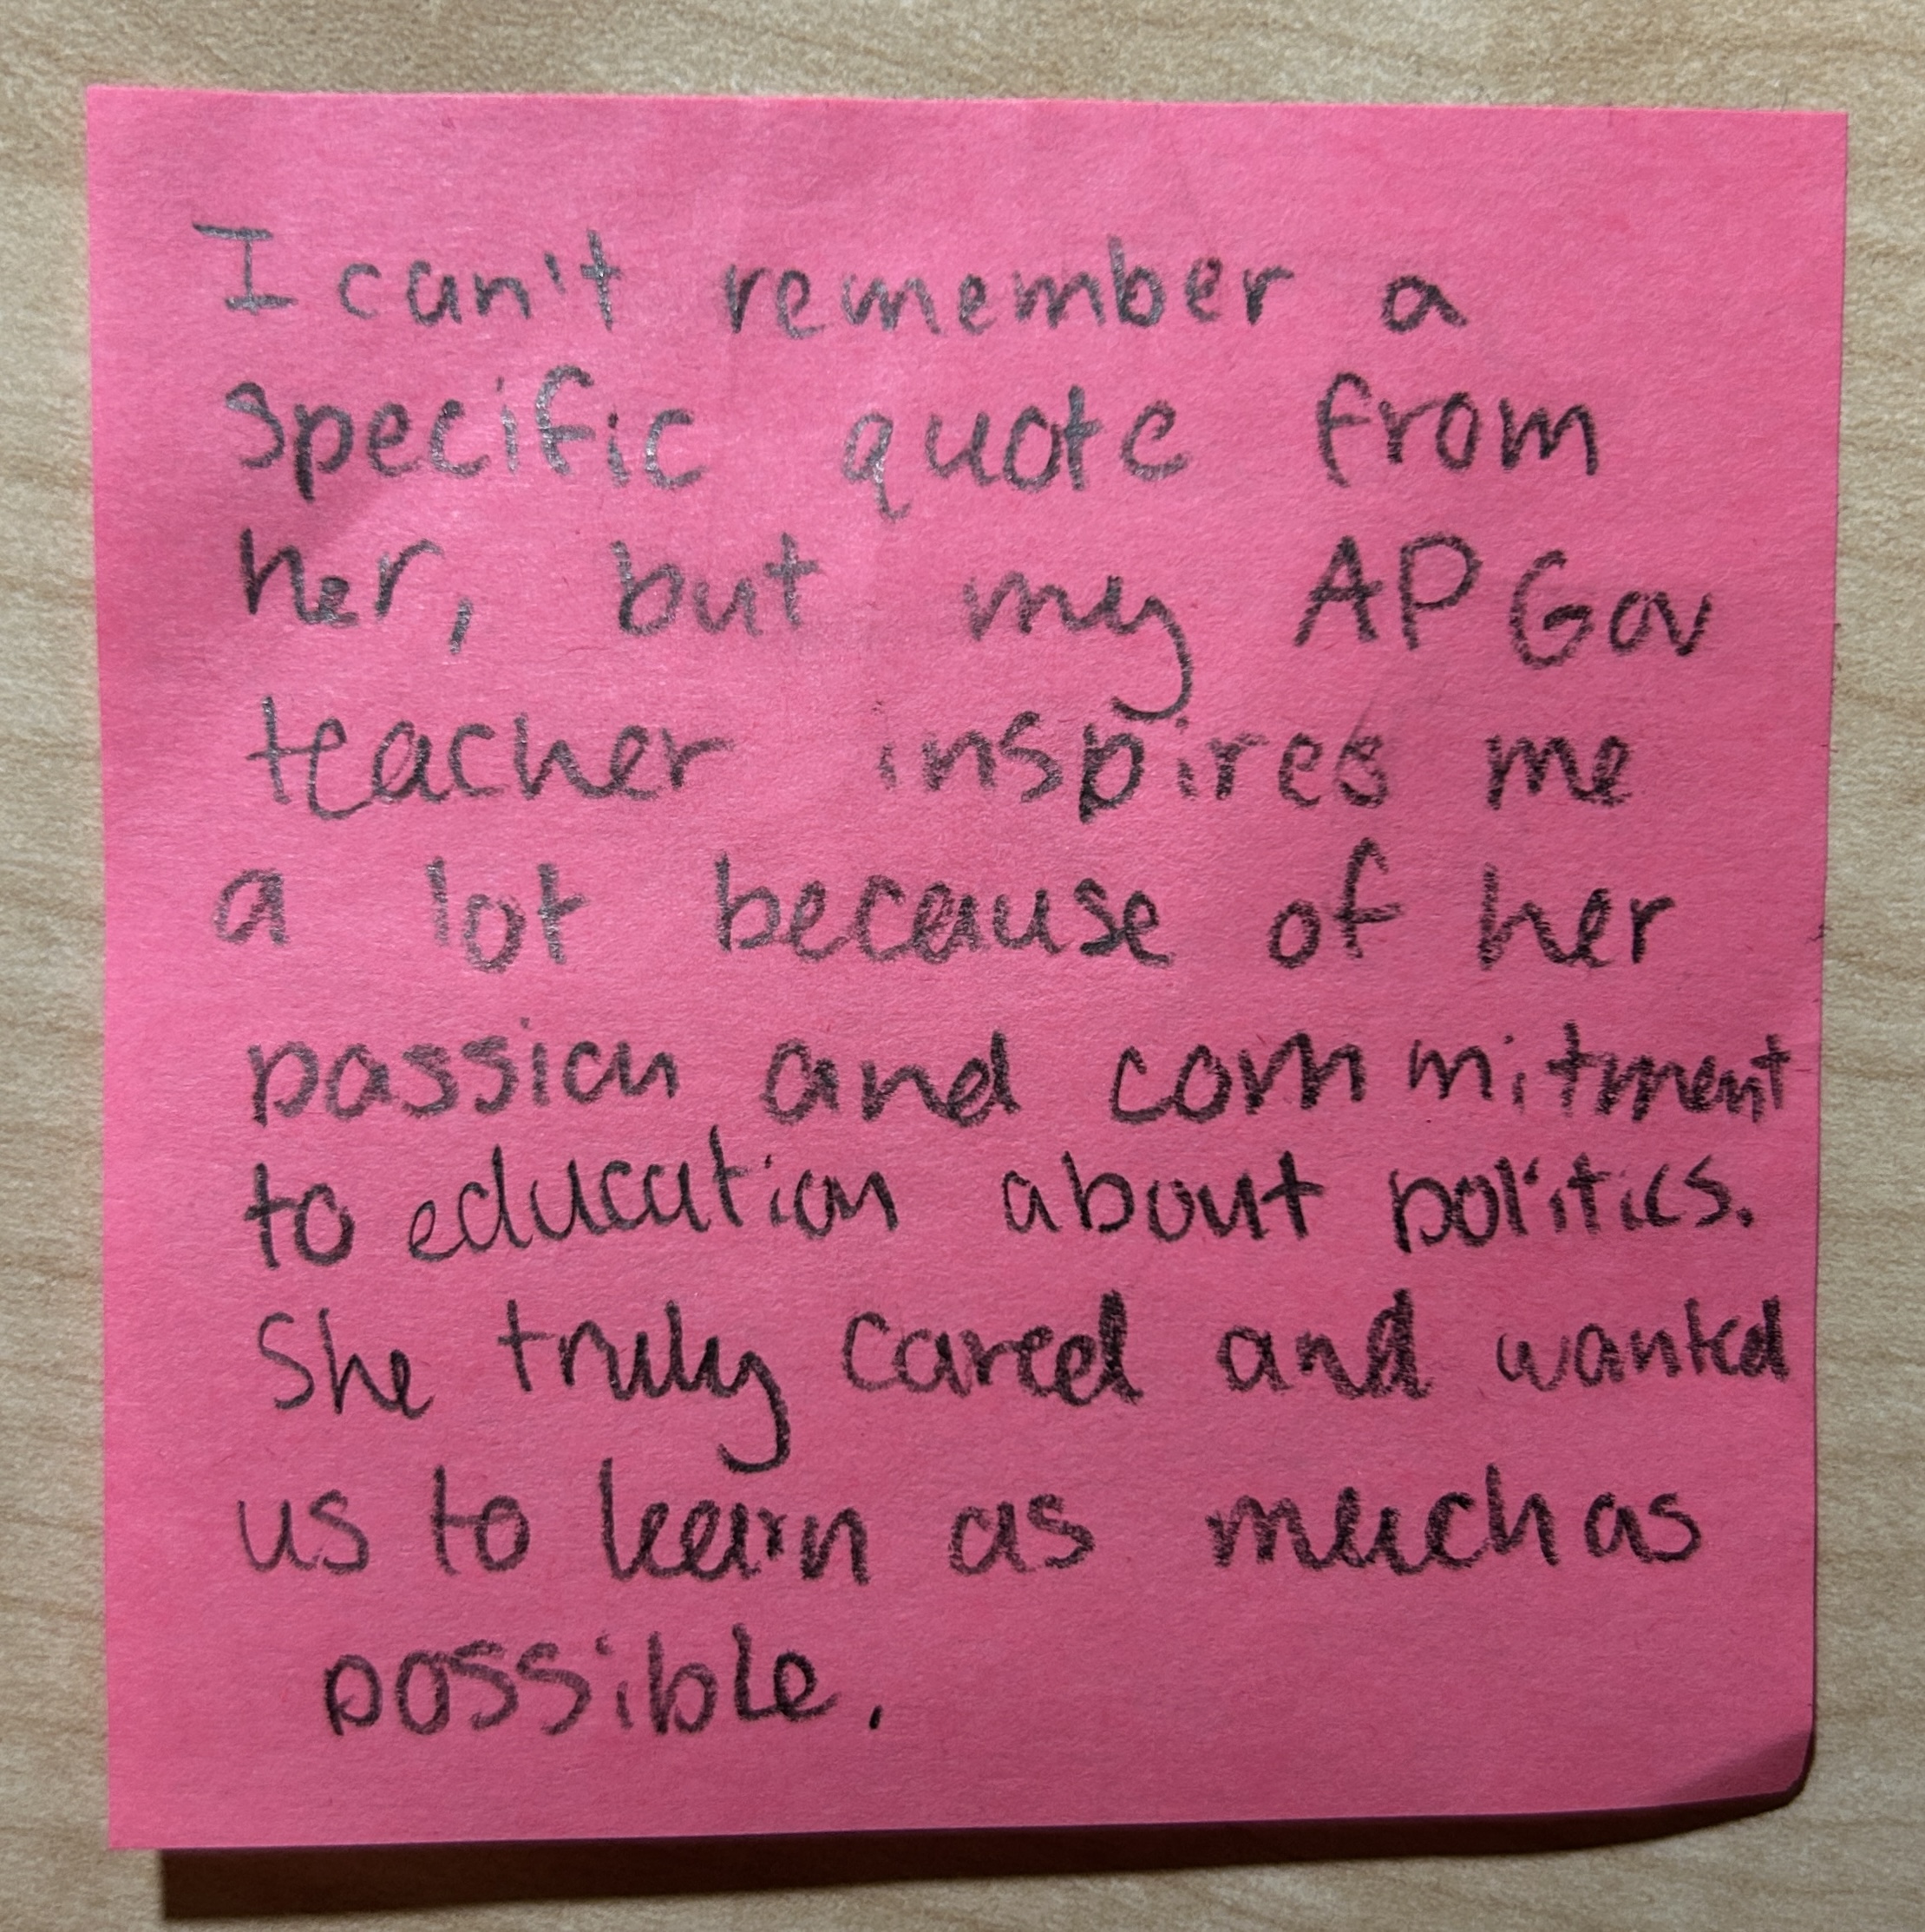 I can't remember a
specific quote from
her, but my AP Gov
teacher inspires me
a lot because of her
passion and commitment
to education about politics.
She truly cared and wanted
us to learn as much as
possible.